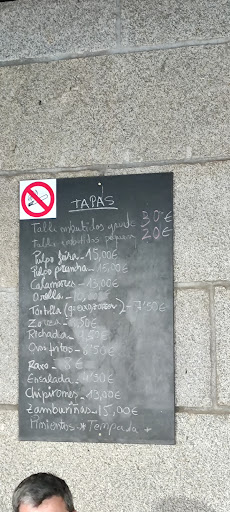 TAPAS
Tabla embutidos grande 30€
Tabla embutidos pequena 20€
Pulpo feira - 15,00€
Pulpo prancha - 15,00€
Calamares - 13,00€
Orella -
Tortilla ( ) - 7'50€
Zorza - 50€
Richada -
Ovos fritos - 8'50€
Raxo - €
Ensalada - 4'50€
Chipirones - 13,00€
Zamburiñas - 15,00€
Pimientos * Tempada *